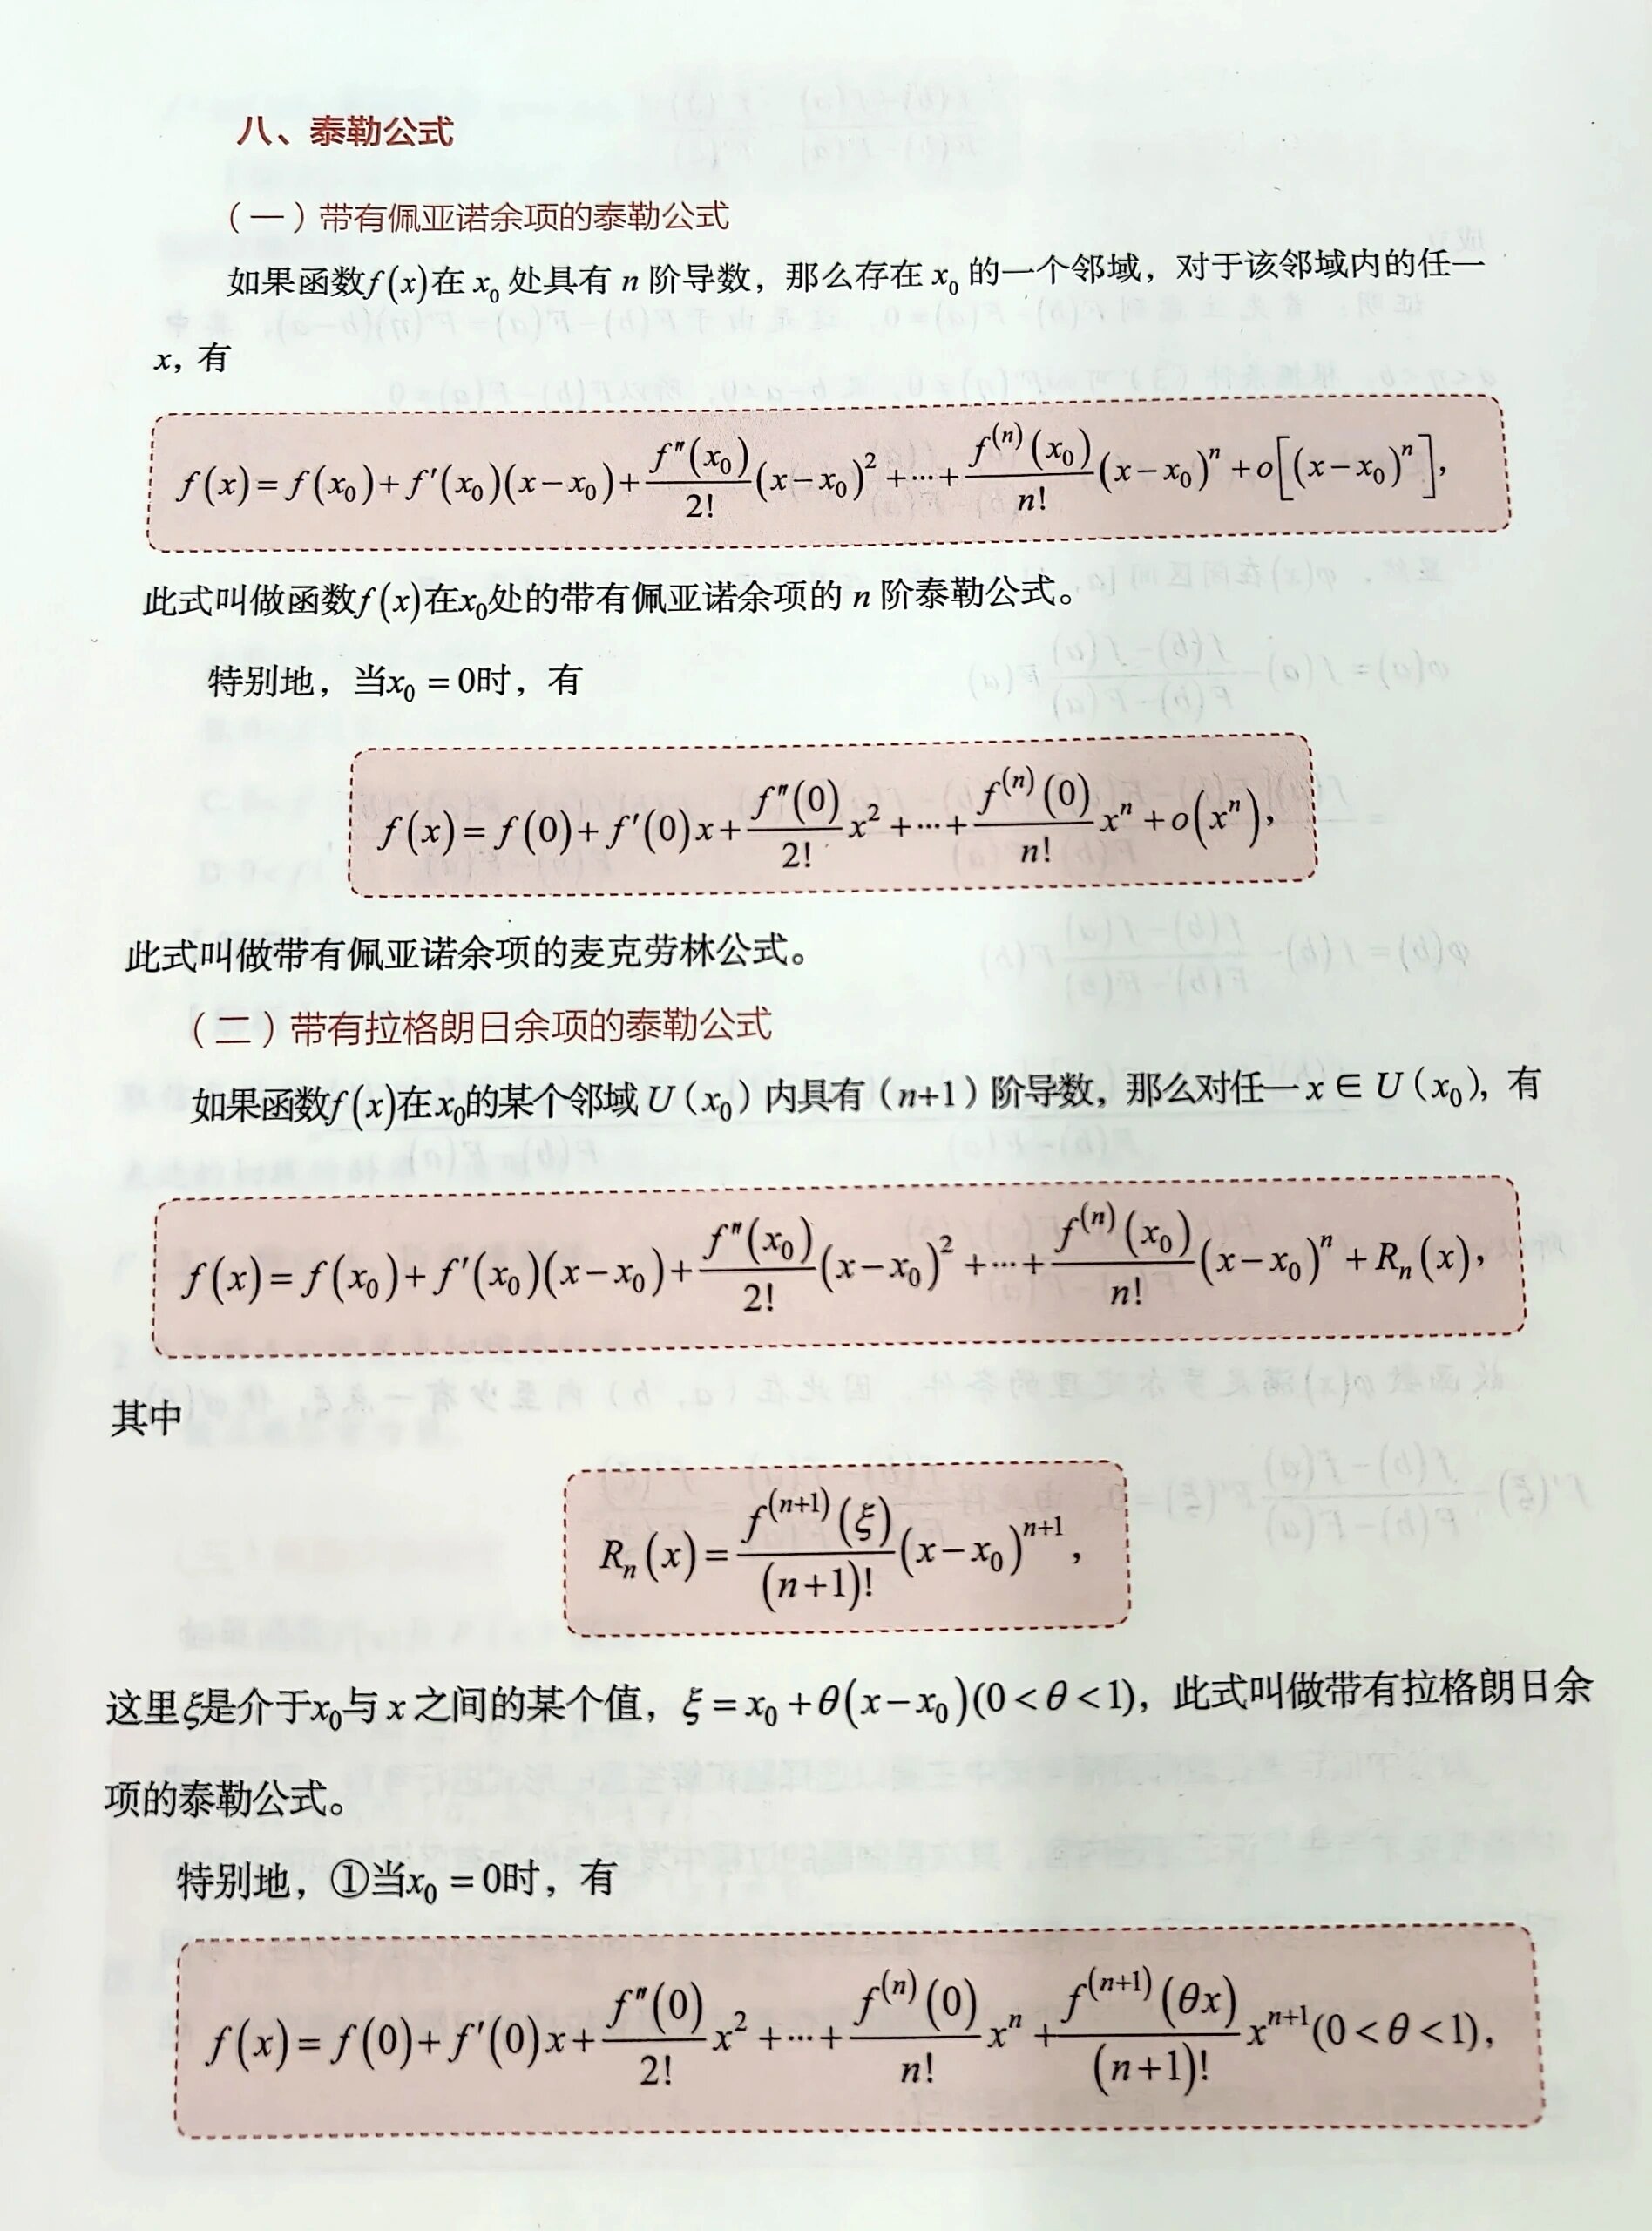 八、泰勒公式
（一）带有佩亚诺余项的泰勒公式
如果函数f(x)在 x₀ 处具有 n 阶导数，那么存在 x₀ 的一个邻域，对于该邻域内的任一
x，有
f(x)=f(x₀)+f′(x₀)(x−x₀)+\frac{f″(x₀)}{2!}(x−x₀)²+⋯+\frac{f⁽ⁿ⁾(x₀)}{n!}(x−x₀)ⁿ+o[(x−x₀)ⁿ],
此式叫做函数f(x)在x₀处的带有佩亚诺余项的 n 阶泰勒公式。
特别地，当x₀=0时，有
f(x)=f(0)+f′(0)x+\frac{f″(0)}{2!}x²+⋯+\frac{f⁽ⁿ⁾(0)}{n!}xⁿ+o(xⁿ),
此式叫做带有佩亚诺余项的麦克劳林公式。
（二）带有拉格朗日余项的泰勒公式
如果函数f(x)在x₀的某个邻域 U（x₀）内具有（n+1）阶导数，那么对任一 x ∈ U（x₀），有
f(x)=f(x₀)+f′(x₀)(x−x₀)+\frac{f″(x₀)}{2!}(x−x₀)²+⋯+\frac{f⁽ⁿ⁾(x₀)}{n!}(x−x₀)ⁿ+Rₙ(x),
其中
Rₙ(x)=\frac{f⁽ⁿ⁺¹⁾(ξ)}{(n+1)!}(x−x₀)ⁿ⁺¹,
这里ξ是介于x₀与 x 之间的某个值，ξ=x₀+θ(x−x₀)(0<θ<1)，此式叫做带有拉格朗日余
项的泰勒公式。
特别地，①当x₀=0时，有
f(x)=f(0)+f′(0)x+\frac{f″(0)}{2!}x²+⋯+\frac{f⁽ⁿ⁾(0)}{n!}xⁿ+\frac{f⁽ⁿ⁺¹⁾(θx)}{(n+1)!}xⁿ⁺¹(0<θ<1),